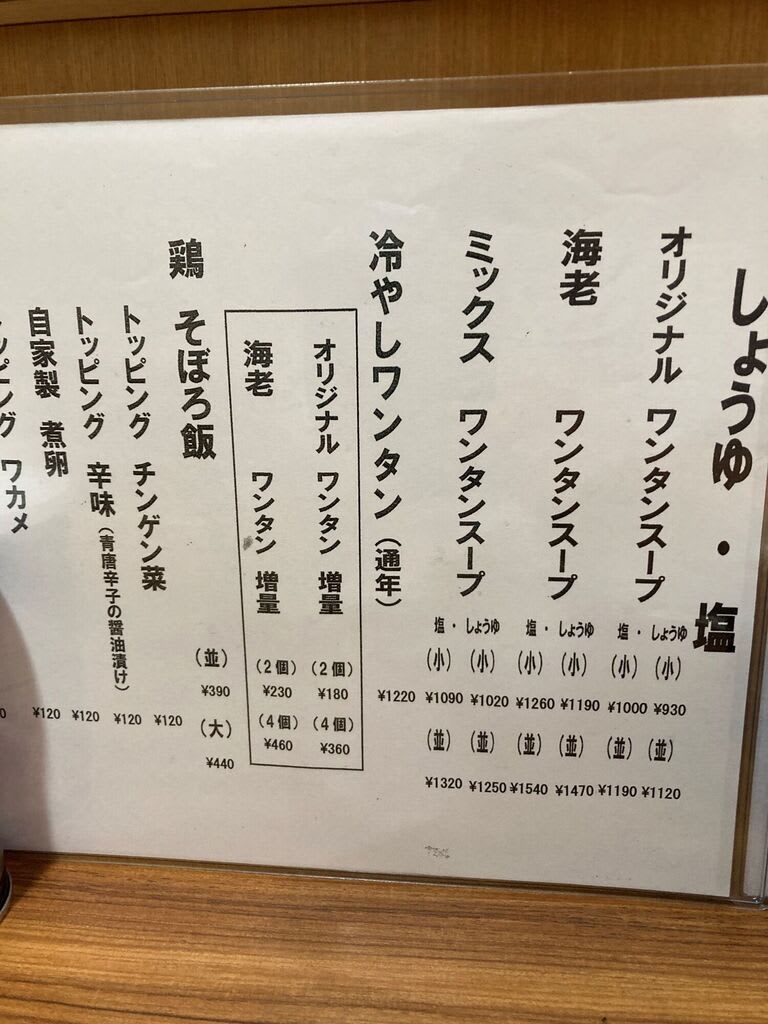 しょうゆ・塩
オリジナル ワンタンスープ
しょうゆ (小) ¥930 (並) ¥1120
塩・ (小) ¥1000 (並) ¥1190
海老 ワンタンスープ
しょうゆ (小) ¥1190 (並) ¥1470
塩・ (小) ¥1260 (並) ¥1540
ミックス ワンタンスープ
しょうゆ (小) ¥1020 (並) ¥1250
塩・ (小) ¥1090 (並) ¥1320
冷やしワンタン(通年) ¥1220
オリジナル ワンタン 増量 (2個) ¥180 (4個) ¥360
海老 ワンタン 増量 (2個) ¥230 (4個) ¥460
鶏 そぼろ飯 (並) ¥390 (大) ¥440
トッピング チンゲン菜 ¥120
トッピング 辛味(青唐辛子の醤油漬け) ¥120
自家製 煮卵 ¥120
ッピング ワカメ ¥120